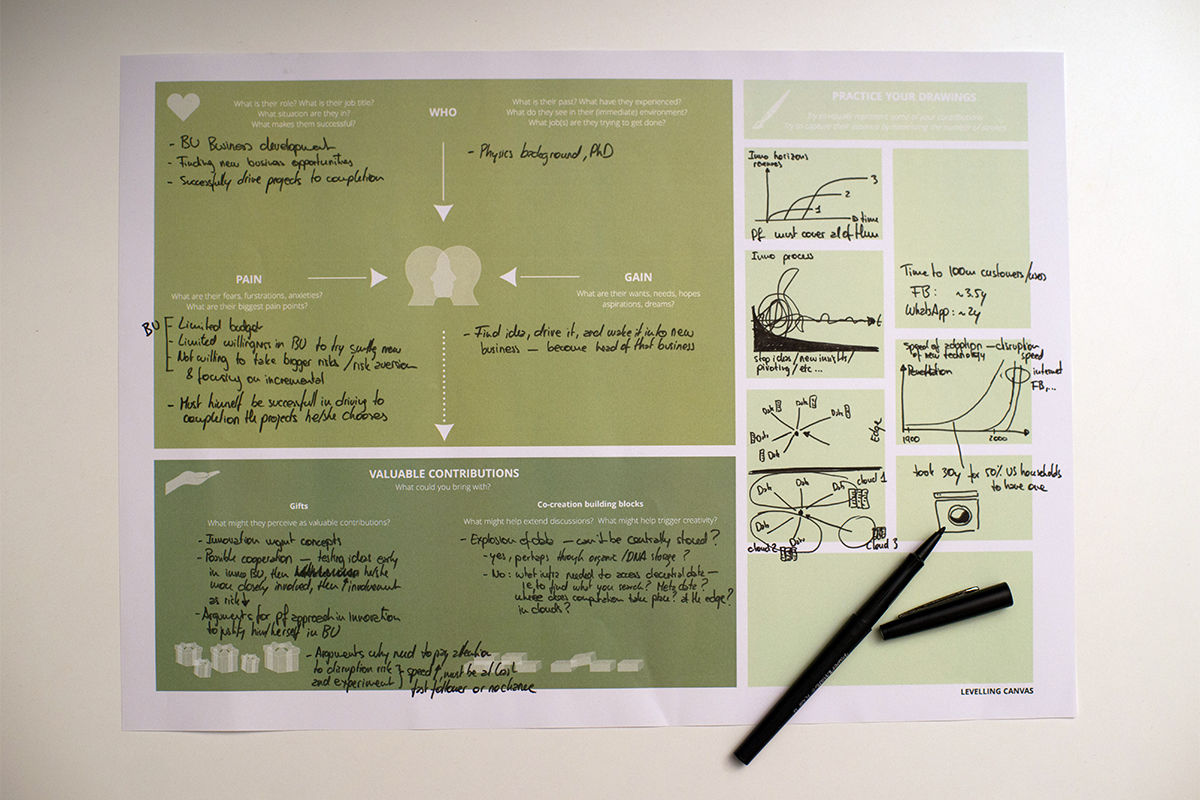 What is their role? What is their job title?
What situation are they in?
What makes them successful?
WHO
What is their past? What have they experienced?
What do they see in their (immediate) environment?
What job(s) are they trying to get done?
- BU Business development
- Finding new business opportunities
- Successfully drive projects to completion
- Physics background, PhD
PAIN
What are their fears, furstrations, anxieties?
What are their biggest pain points?
GAIN
What are their wants, needs, hopes
aspirations, dreams?
BU
- Limited budget
- Limited willingness in BU to try new
- Not willing to take bigger risks / risk aversion
& focusing on incremental
- Must himself be successfull in driving to
completion the projects he/she chooses
- Find idea, drive it, and make it into new
business — become head of that business
VALUABLE CONTRIBUTIONS
What could you bring with?
Gifts
What might they perceive as valuable contributions?
- Innovation mgmt concepts
- Possible cooperation — testing ideas early
in inno BU, then he/she
more closely involved, then ↑ involvement
as risk ↓
- Arguments for pf approach in innovation
to justify him/herself in BU
- Arguments why need to pay attention
to disruption risk
and experiment } speed ↑, must be at least
fast follower or no chance
Co-creation building blocks
What might help extend discussions? What might help trigger creativity?
- Explosion of data — can't be centrally stored?
- yes, perhaps through organic / DNA storage?
- No: what infra needed to access decentral data —
ie, to find what you search? Meta data?
where does computation take place? at the edge?
in clouds?
PRACTICE YOUR DRAWINGS
Try to visually represent some of your contributions.
Try to capture their essence by minimizing the number of strokes
Inno horizons
revenues
3
2
1
time
Pf must cover all of them
Inno process
t
stop ideas / new insights /
pivoting / etc...
Data
Data
Data
Data
Data
Edge
Data
Data
Data
Data
Data
cloud 1
cloud 2
cloud 3
Time to 100m customers/users
FB: ~3.5y
WhatsApp: ~2y
Speed of adoption — disruption
of new technology
speed
Penetration
internet
FB, ...
1900
2000
took 30y for 50% US households
to have one
LEVELLING CANVAS